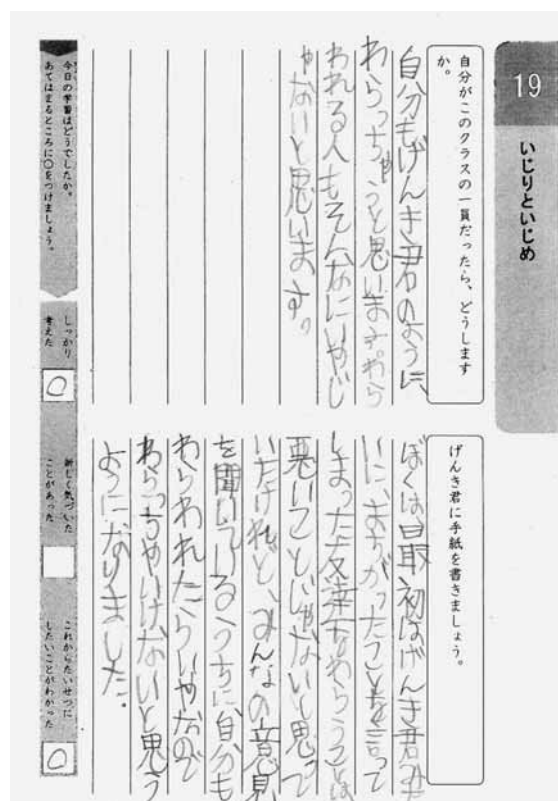 19
いじりといじめ
自分がこのクラスの一員だったら、どうします
か。
自分もげんき君のように、
わらっちゃうと思います。わら
われる人もそんなにいやじ
ゃないと思います。
げんき君に手紙を書きましょう。
ぼくは最初はげんき君みた
いに、まちがったことを言って
しまった友達をわらうことは
悪いことじゃないと思って
いたけれど、みんなの意見
を聞いているうちに自分も
わらわれたらいやなので
わらっちゃいけないと思う
ようになりました。
今日の学習はどうでしたか。
あてはまるところに○をつけましょう。
しっかり
考えた
○
新しく気づいた
ことがあった
これからたいせつに
したいことがわかった
○